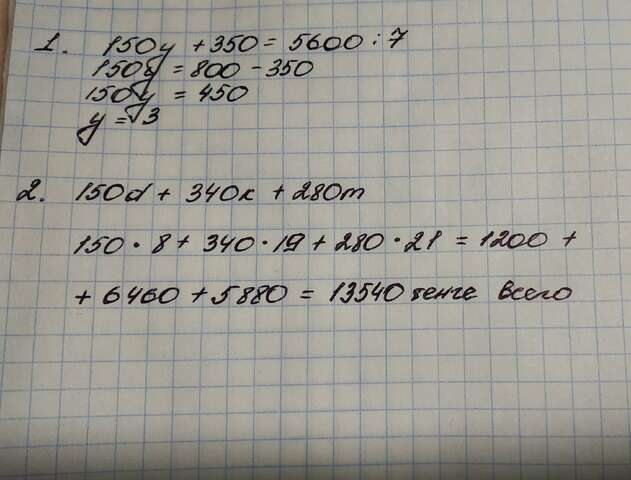 1. 150y + 350 = 5600 : 7
150y = 800 - 350
150y = 450
y = 3
2. 150d + 340k + 280m
150 · 8 + 340 · 19 + 280 · 21 = 1200 +
+ 6460 + 5880 = 13540 тенге всего